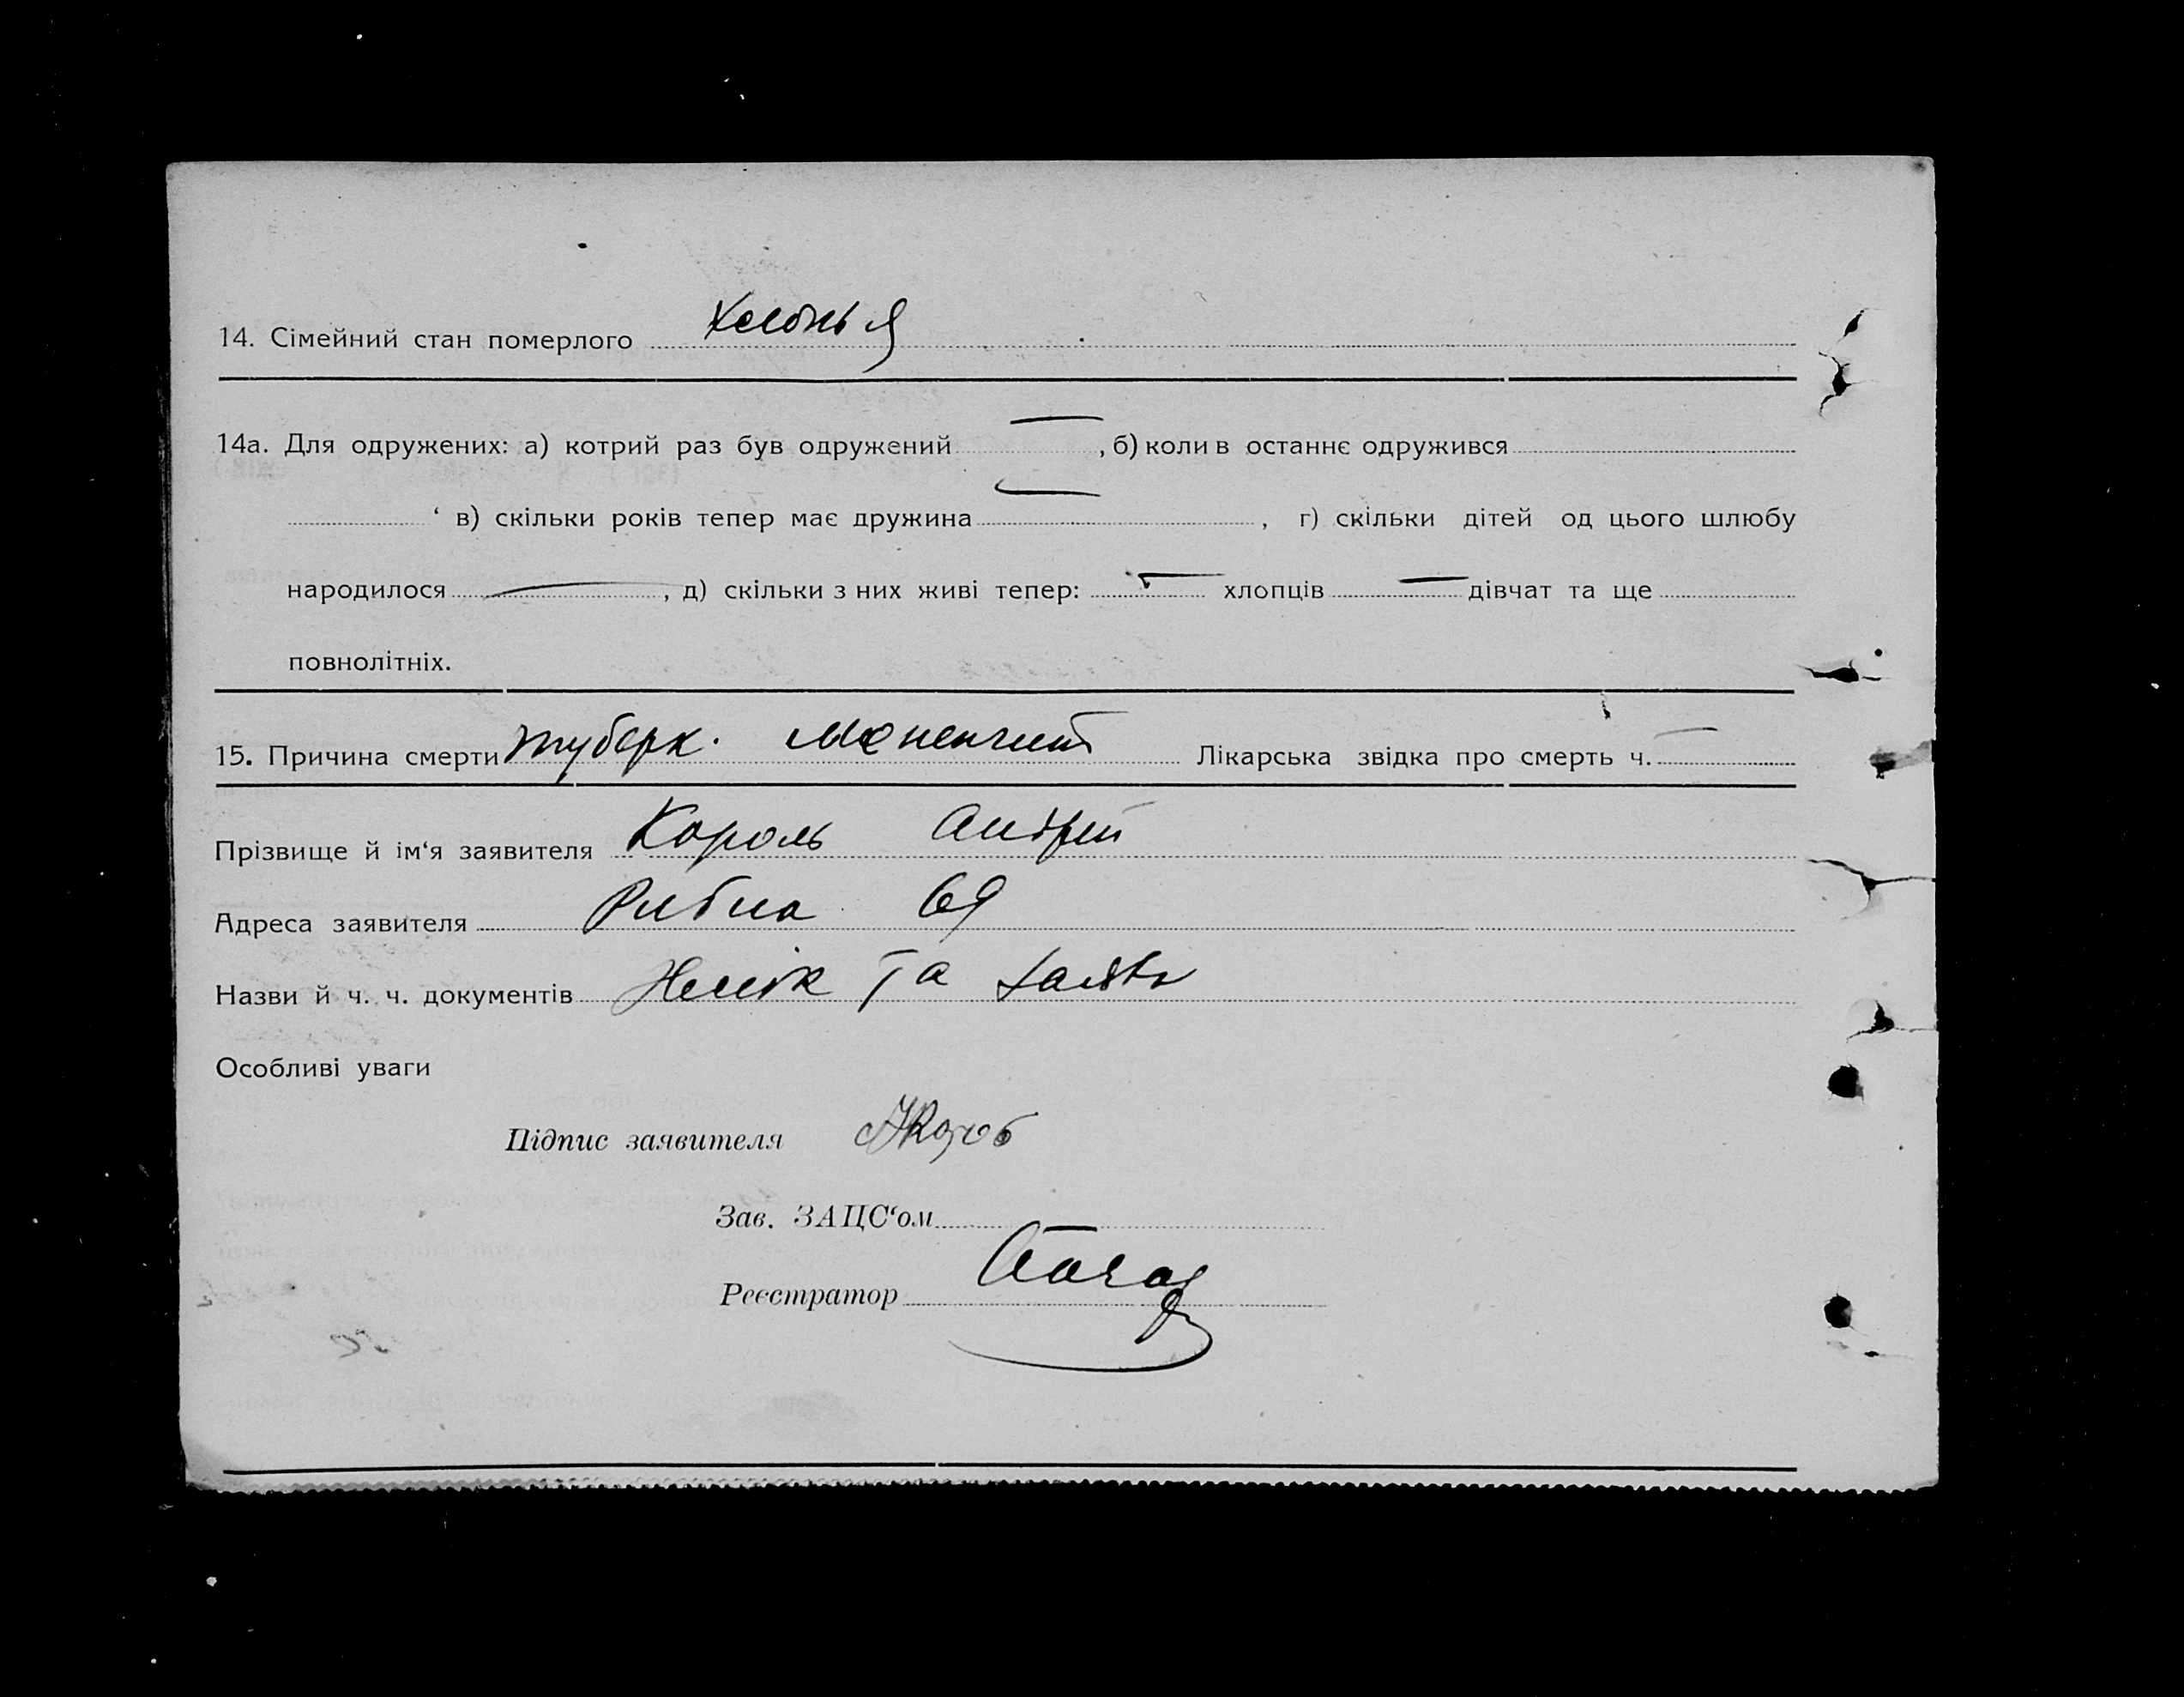 14. Сімейний стан померлого
14а. Для одружених: а) котрий раз був одружений — , б) коли в останнє одружився
‘ в) скільки років тепер має дружина — , г) скільки дітей од цього шлюбу
народилося — , д) скільки з них живі тепер: — хлопців — дівчат та ще
повнолітніх.
15. Причина смерти туберк. Мененгит Лікарська звідка про смерть ч. —
Прізвище й ім‘я заявителя Король Андрій
Адреса заявителя Рибна 69
Назви й ч. ч. документів та
Особливі уваги
Підпис заявителя
Зав. ЗАЦС‘ом —
Реєстратор